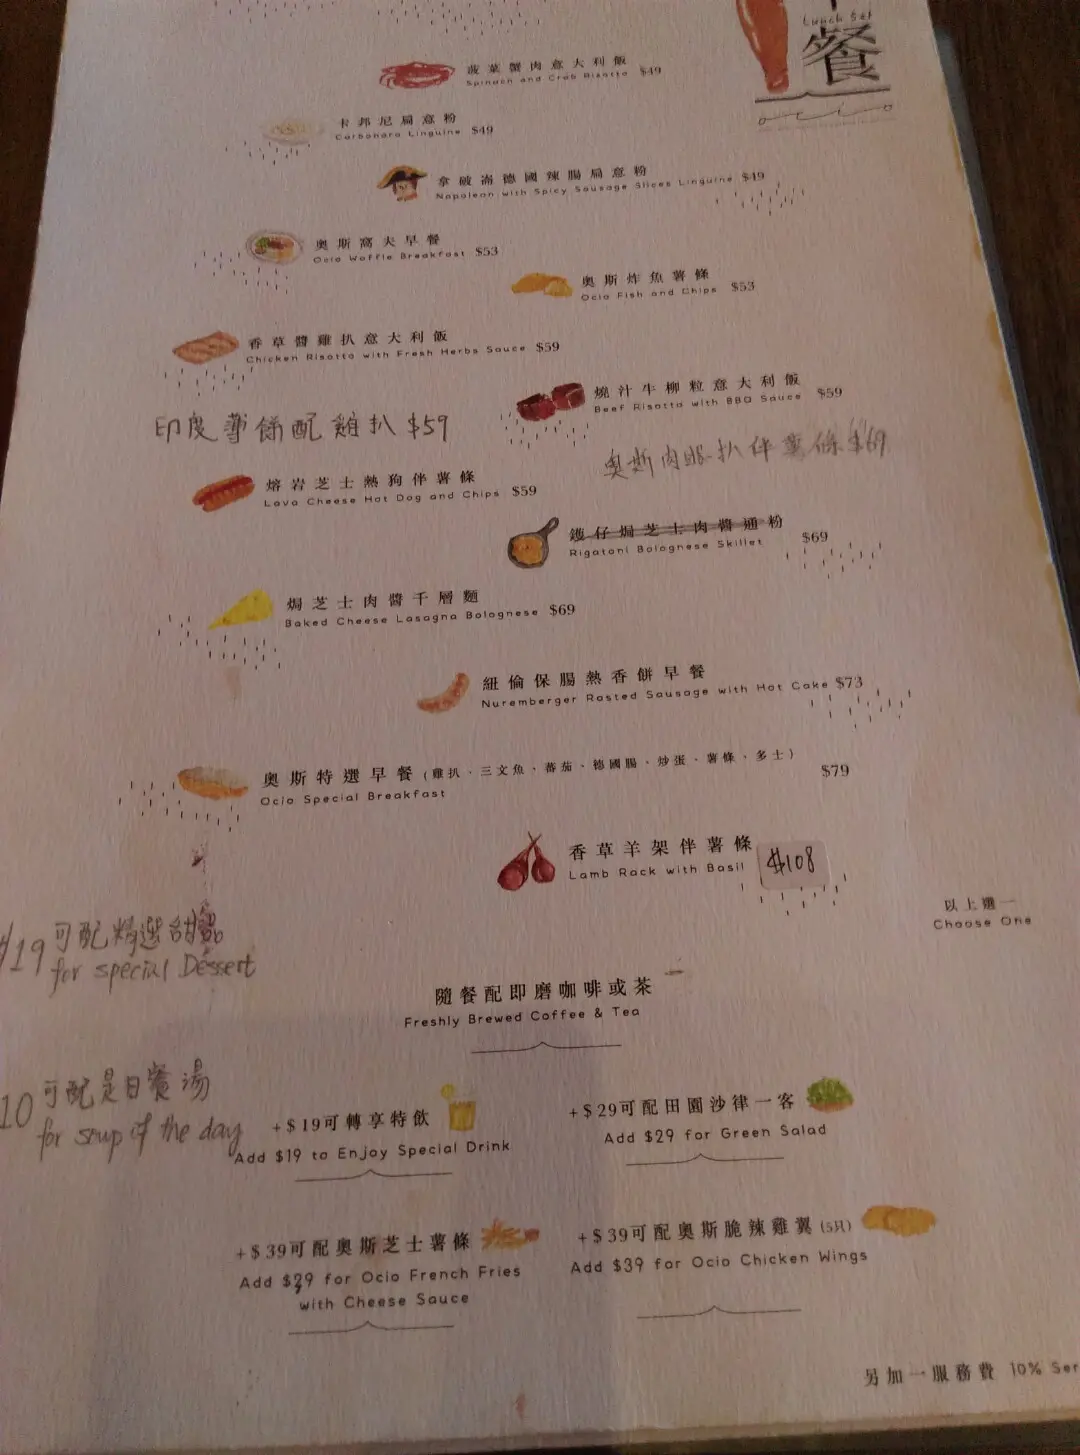 Lunch Set
餐
ocio
菠菜蟹肉意大利飯
Spinach and Crab Risotto $49
卡邦尼扁意粉
Carbonara Linguine $49
拿破崙德國辣腸扁意粉
Napolean with Spicy Sausage Slices Linguine $49
奧斯窩夫早餐
Ocio Waffle Breakfast $53
奧斯炸魚薯條
Ocio Fish and Chips $53
香草醬雞扒意大利飯
Chicken Risotto with Fresh Herbs Sauce $59
燒汁牛柳粒意大利飯
Beef Risotto with BBQ Sauce $59
印度薄餅配雞扒 $59
奧斯肉眼扒伴薯條 $69
熔岩芝士熱狗伴薯條
Lava Cheese Hot Dog and Chips $59
鑊仔焗芝士肉醬通粉
Rigatoni Bolognese Skillet $69
焗芝士肉醬千層麵
Baked Cheese Lasagna Bolognese $69
紐倫保腸熱香餅早餐
Nuremberger Rosted Sausage with Hot Cake $73
奧斯特選早餐 (雞扒、三文魚、蕃茄、德國腸、炒蛋、薯條、多士)
Ocio Special Breakfast $79
香草羊架伴薯條
Lamb Rack with Basil $108
以上選一
Choose One
$19 可配精選甜品
for special Dessert
隨餐配即磨咖啡或茶
Freshly Brewed Coffee & Tea
10 可配是日餐湯
for soup of the day
+$19可轉享特飲
Add $19 to Enjoy Special Drink
+$29可配田園沙律一客
Add $29 for Green Salad
+$39可配奧斯芝士薯條
Add $39 for Ocio French Fries
with Cheese Sauce
+$39可配奧斯脆辣雞翼 (5只)
Add $39 for Ocio Chicken Wings
另加一服務費 10% Ser